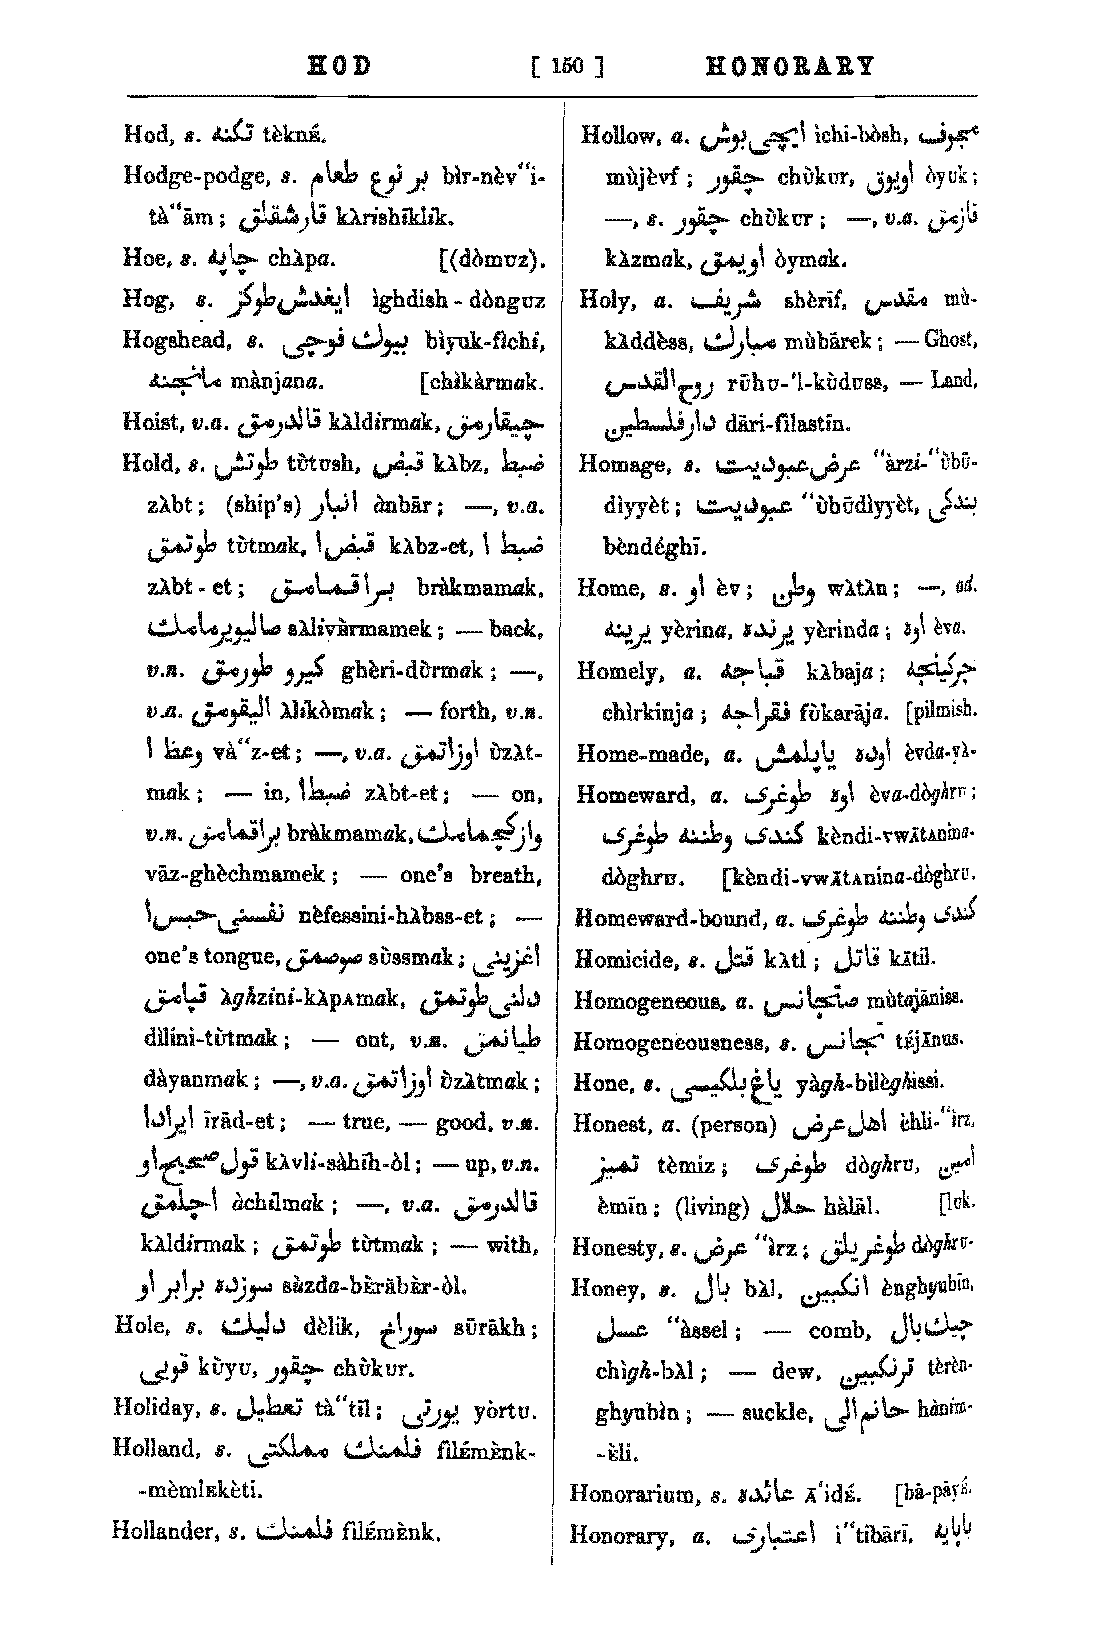 HOD [ 150 ] HONORARY
Hod, s. تكنه tèknḗ.
Hodge-podge, s. بر نوع طعام bìr-nèv“i-
tà“ām; قارشقلق kλrishiklik.
Hoe, s. چاپه chλpa. [(dòmʊz).
Hog, s. ايغدش طوكز ìghdish-dònguz
Hogshead, s. بيوك فوچى bìyuk-fìchi,
مانجنه mànjana. [chìkàrmak.
Hoist, v.a. قالدرمق kλldirmak, چيقارمق
Hold, s. طوتش tùtʊsh, قبض kλbz, ضبط
zλbt; (ship's) انبار ànbār; —, v.a.
طوتمق tùtmak, قبض ا kλbz-et, ضبط ا
zλbt-et; براقمامق bràkmamak,
صاليويرمامك sλlivàrmamek; — back,
v.n. كيرو طورمق ghèri-dùrmak; —,
v.a. اليقومق λlikòmak; — forth, v.n.
وعظ ا và“z-et; —, v.a. اوزاتمق ùzλt-
mak; — in, ضبط ا zλbt-et; — on,
v.n. براقمامق bràkmamak, وازكچمامك
vāz-ghèchmamek; — one's breath,
نفسنى حبس ا nèfessini-hλbss-et; —
one's tongue, صوصمق sùssmak; اغزينى
قپامق λghzini-kλpᴀmak, دلنى طوتمق
dìlini-tùtmak; — out, v.n. طيانمق
dàyanmak; —, v.a. اوزاتمق ùzλtmak;
ايراد ا īrād-et; — true, — good, v.n.
قول صحيح او kλvli-sàhīh-òl; — up, v.n.
اچلمق àchilmak; —, v.a. قالدرمق
kλldirmak; طوتمق tùtmak; — with,
سوزده برابر او sùzda-bèrābèr-òl.
Hole, s. دليك dèlik, سوراخ sūrākh;
قويى kùyʊ, چقور chùkʊr.
Holiday, s. تعطيل tà“tīl; يورتى yòrtʊ.
Holland, s. فلمنك مملكتى fìlémènk-
-mèmlᴇkèti.
Hollander, s. فلمنك fìlémènk.
Hollow, a. ايچى بوش ìchi-bòsh, مجوف
mùjèvf; چقور chùkur, اويوق òyuk;
—, s. چقور chùkʊr; —, v.a. قازمق
kλzmak, اويمق òymak.
Holy, a. شريف shèrīf, مقدس mù-
kλddèss, مبارك mùbārek; — Ghost,
روح القدس rūhʊ-'l-kùdʊss, — Land,
دار فلسطين dāri-fìlastīn.
Homage, s. عرض عبوديت “àrzi-“ùbū-
dìyyèt; عبوديت “ùbūdìyyèt, بندكى
bèndéghī.
Home, s. او èv; وطن wλtλn; —, ad.
يرينه yèrina, يرنده yèrinda; اوه èva.
Homely, a. قباجه kλbaja; چركينجه
chìrkinja; فقراجه fùkarāja. [pilmish.
Home-made, a. اوده ياپلمش èvda-yλ-
Homeward, a. اوه طوغرى èva-dòghrʊ;
كندى وطننه طوغرى kèndi-vwātᴀnina-
dòghrʊ. [kèndi-vwātᴀnina-dòghrʊ.
Homeward-bound, a. كندى وطننه طوغرى
Homicide, s. قتل kλtl; قاتل kātil.
Homogeneous, a. متجانس mùtajāniss.
Homogeneousness, s. تجانس téjānus.
Hone, s. ياغ بلكيسى yàgh-bìlèghissi.
Honest, a. (person) اهل عرض èhli-“irz,
تميز tèmiz; طوغرى dòghrʊ, امين
èmīn; (living) حلال hàlāl. [lʊk.
Honesty, s. عرض “ìrz; طوغريلق dòghrʊ-
Honey, s. بال bàl, انكبين ènghyubīn,
عسل “àssel; — comb, چيك بال
chìgh-bλl; — dew, ترنكبين tèrèn-
ghyubìn; — suckle, حانم الى hànim-
-èli.
Honorarium, s. عائده ā'idé. [bā-pāyé.
Honorary, a. اعتبارى i“tibārī, باپايه